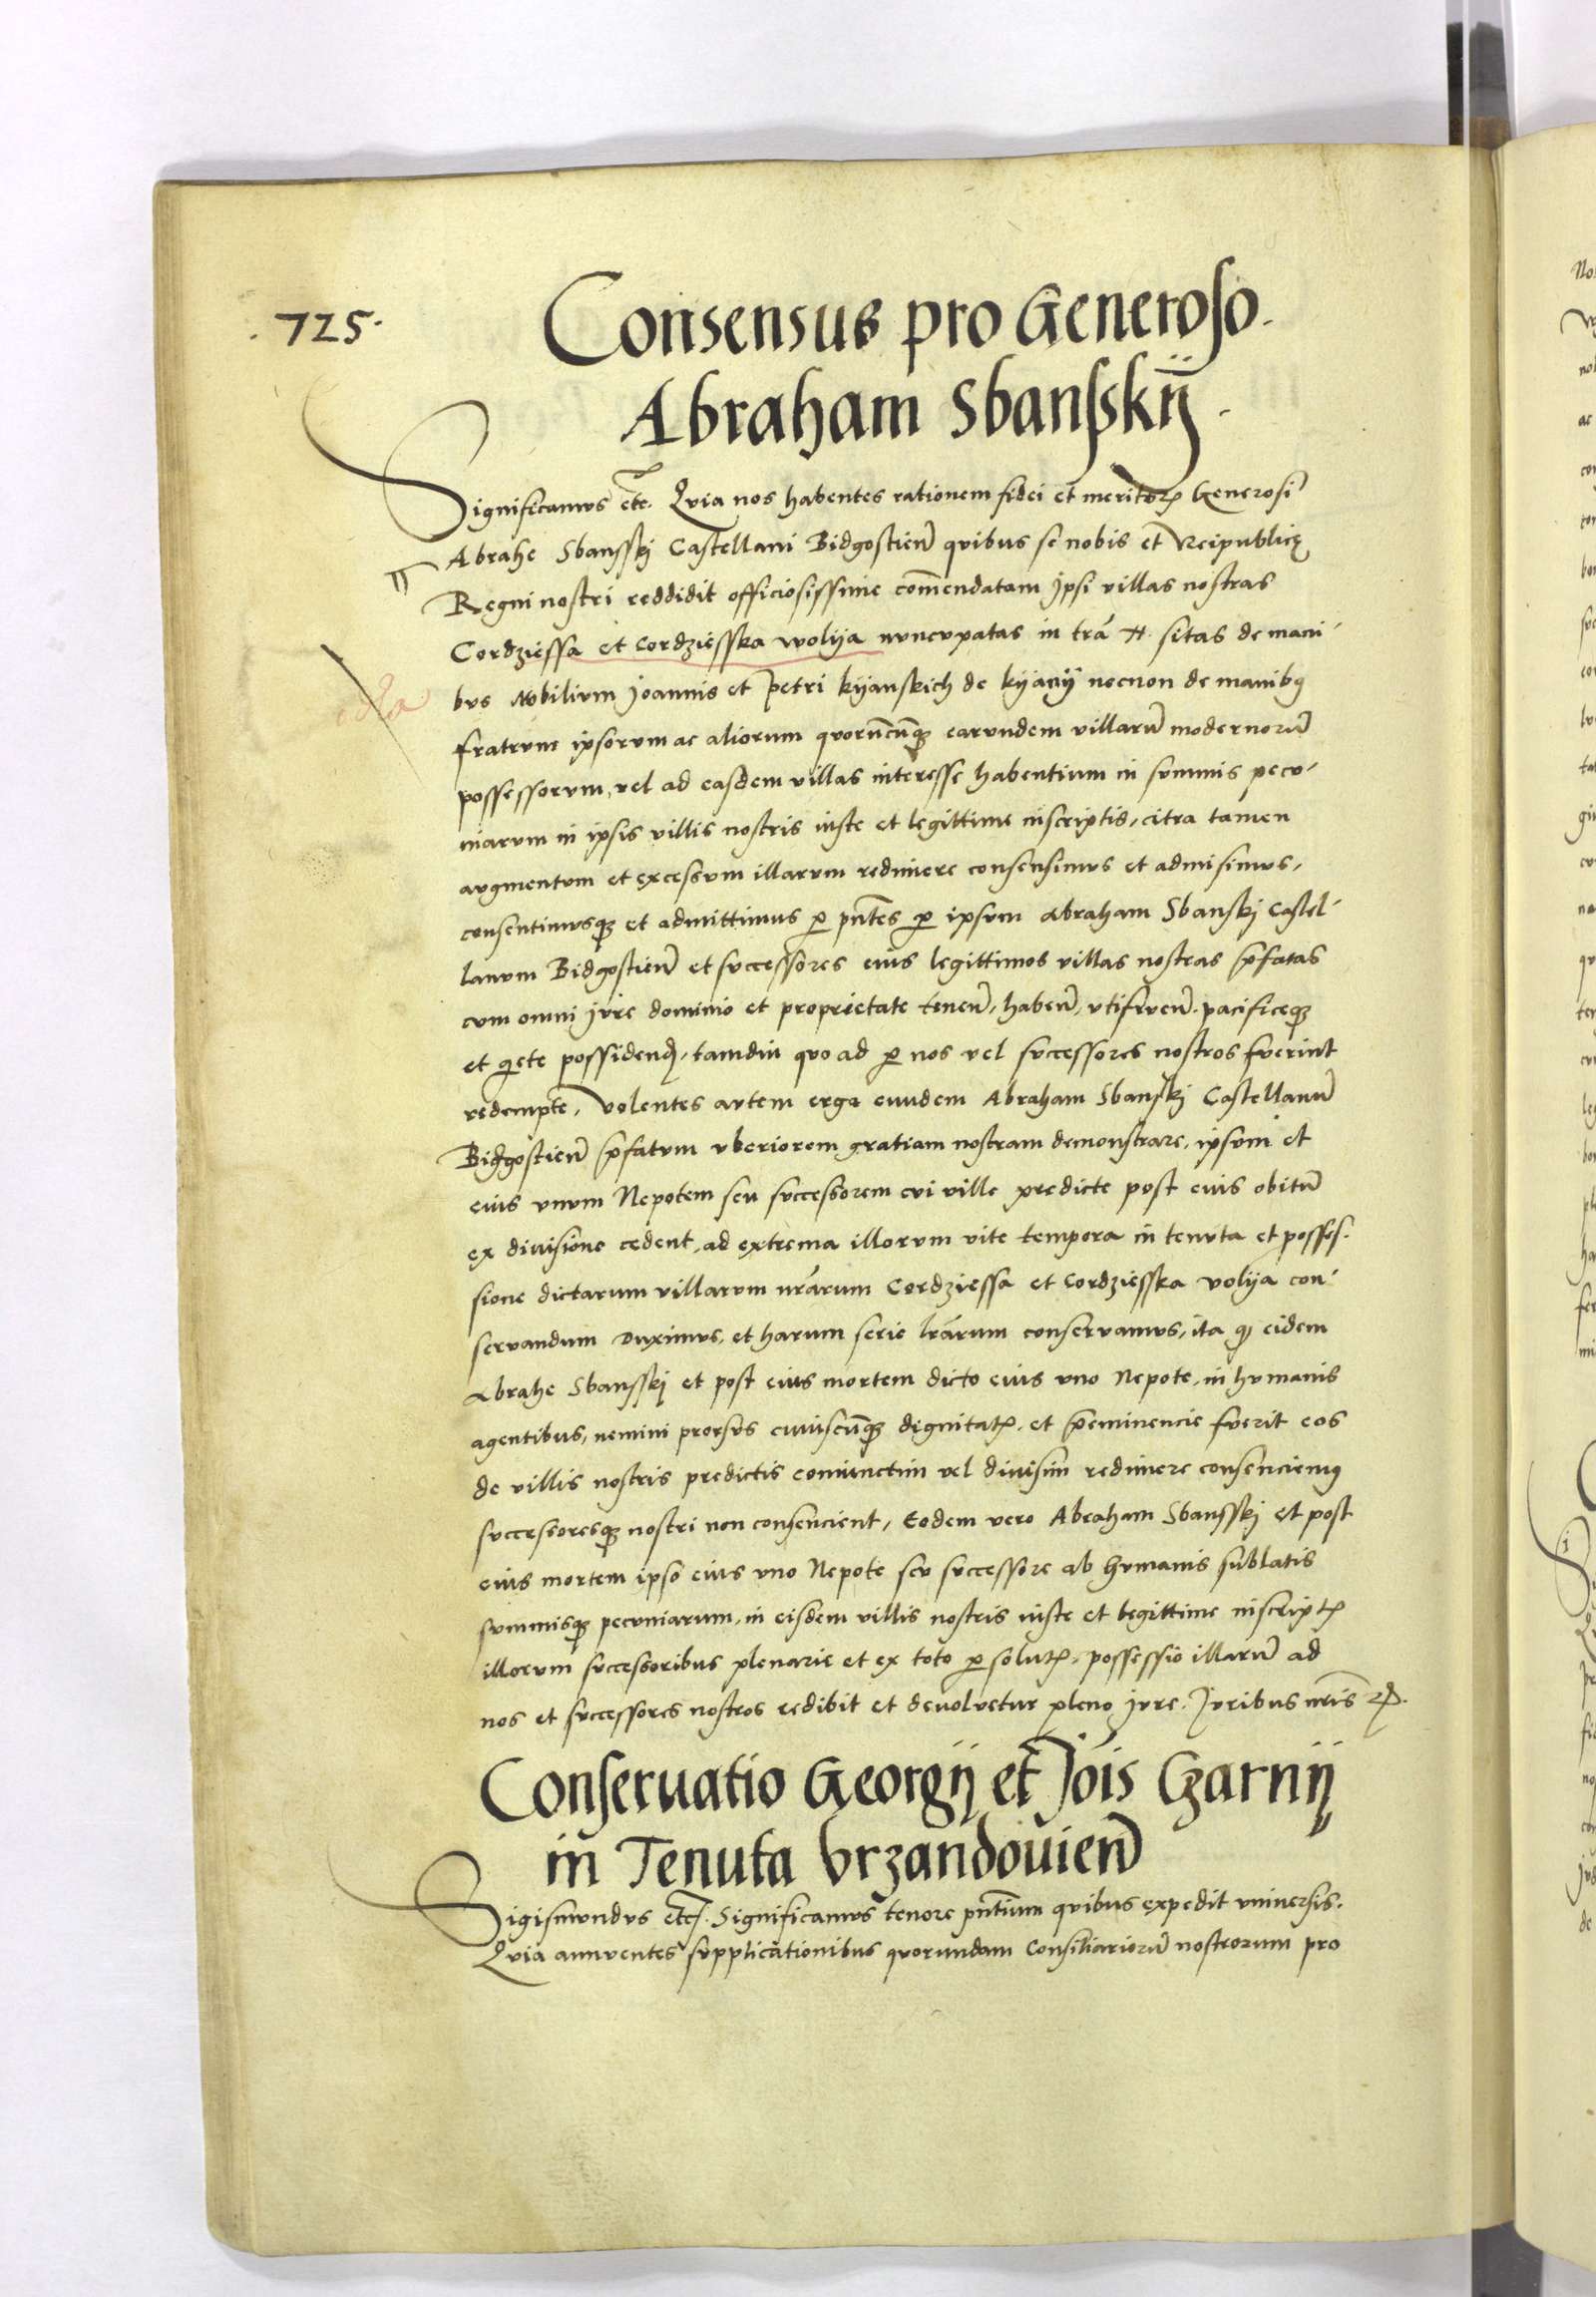 .725.
Consensus pro Generoso
Abraham Sbansskij.
Significamus etc. Quia nos habentes rationem fidei et meritorꝝ Generosi
Abrahe Sbansskj Castellani Bidgostien̄ quibus se nobis et Reipublicę
Regni nostri reddidit officiosissime com̄endatam Jpsi villas nostras
Cordziessa et Cordziesska wolija nuncupatas in trā sitas de mani-
bus Nobilium Joannis et Petri kijanskich de kijanij necnon de manibꝰ
fratrum ipsorum ac aliorum quorūcūqꝫ earundem villarū modernorū
possessorum, vel ad easdem villas interesse habentium in summis pecu-
niarum in ipsis villis nostris iuste et legittime inscriptis, citra tamen
augmentum et excessum illarum redimere consensimus et admisimus,
consentimusqꝫ et admittimus ꝑ pn̄tes ꝑ ipsum Abraham Sbanskj Castel-
lanum Bidgostien̄ et successores eius legittimos villas nostras p̄fatas
cum omni jure dominio et proprietate tenen̄, haben̄, utifruen̄. pacificeqꝫ
et qiete possidend, tamdiu quo ad ꝑ nos vel successores nostros fuerint
redempte, Volentes autem erga eundem Abraham Sbanskj Castellanū
Bidgostien̄ p̄fatum uberiorem gratiam nostram demonstrare, ipsum et
eius unum Nepotem seu successorem cui ville predicte post eius obitū
ex divisione cedent, ad extrema illorum vite tempora in tenuta et posses-
sione dictarum villarum nr̄arum Cordziessa et Cordziesska volija con-
servandum duximus, et harum serie lr̄arum conservamus, ita qꝫ eidem
Abrahe Sbansskj et post eius mortem dicto eius uno Nepote, in humanis
agentibus, nemini prorsus cuiuscūqꝫ dignitatꝭ, et p̄eminencie fuerit eos
de villis nostris predictis coniunctim vel divisim redimere consenciemꝰ
successoresqꝫ nostri non consencient, Eodem vero Abraham Sbansskj et post
eius mortem ipso eius uno Nepote seu successore ab humanis sublatis
summisqꝫ pecuniarum, in eisdem villis nostris iuste et legittime inscriptꝭ
illorum successoribus plenarie et ex toto ꝑsolutꝭ, possessio illarū ad
nos et successores nostros redibit et devolvetur pleno jure. Juribus nr̄is
Conservatio Georgij et Jōis Czarnij
in Tenuta Vrzandovien̄
Sigismundus etc. Significamus tenore pn̄tium quibus expedit universis.
Quia annuentes supplicationibus quorundam Consiliariorū nostrorum pro